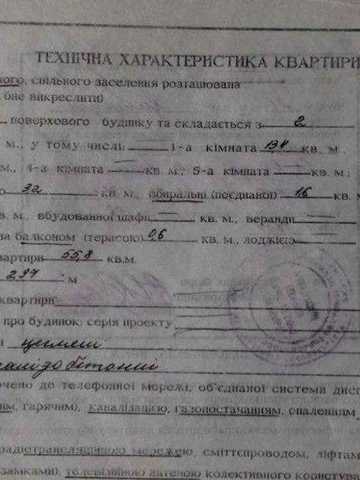 ТЕХНІЧНА ХАРАКТЕРИСТИКА КВАРТИРИ
ного, спільного заселення розташована
бне викреслити)
поверхового будинку та складається з 2
м., у тому числі 1-а кімната кв. м.
м., 4-а кімната кв. м; 5-а кімната кв.
32 кв. м, вбиральні (поєднаної) 1,6 кв.
в. м., вбудованної шафи кв. м., веранди
на балконом (терасою) 0,6 кв. м., лоджією
вартири 55,8 кв.м.
м
квартири
про будинок: серія проекту
цегляні
чено до телефонної мережі, об'єднаної система дисп
им, гарячим), каналізацією, газопостачанням, опаленням
радіотрансляційною мережею, сміттєпроводом, ліфтам
замками), телевізійною антеною колективного користува